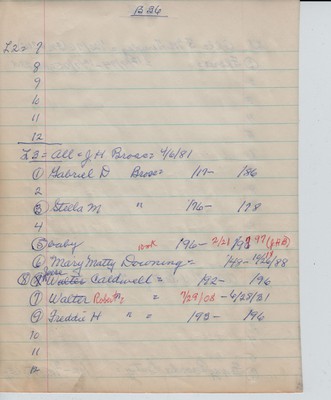 B 26
L2 = 7
8
9
10
11
12
L3 = All = J.H Bross = 4/6/81
① Gabriel D Bross = /17 - /86
2
③ Stella M " /76 - /78
4
⑤ baby 196 - 2/21/98 97 (JAB)
⑥ Mary Matty Downing = /48 - /88
⑧ Jesse Caldwell = /92 - /96
⑦ Walter Robert = 7/29/08 - 4/28/31
9 Freddie H " = /93 - /96
10
11
12